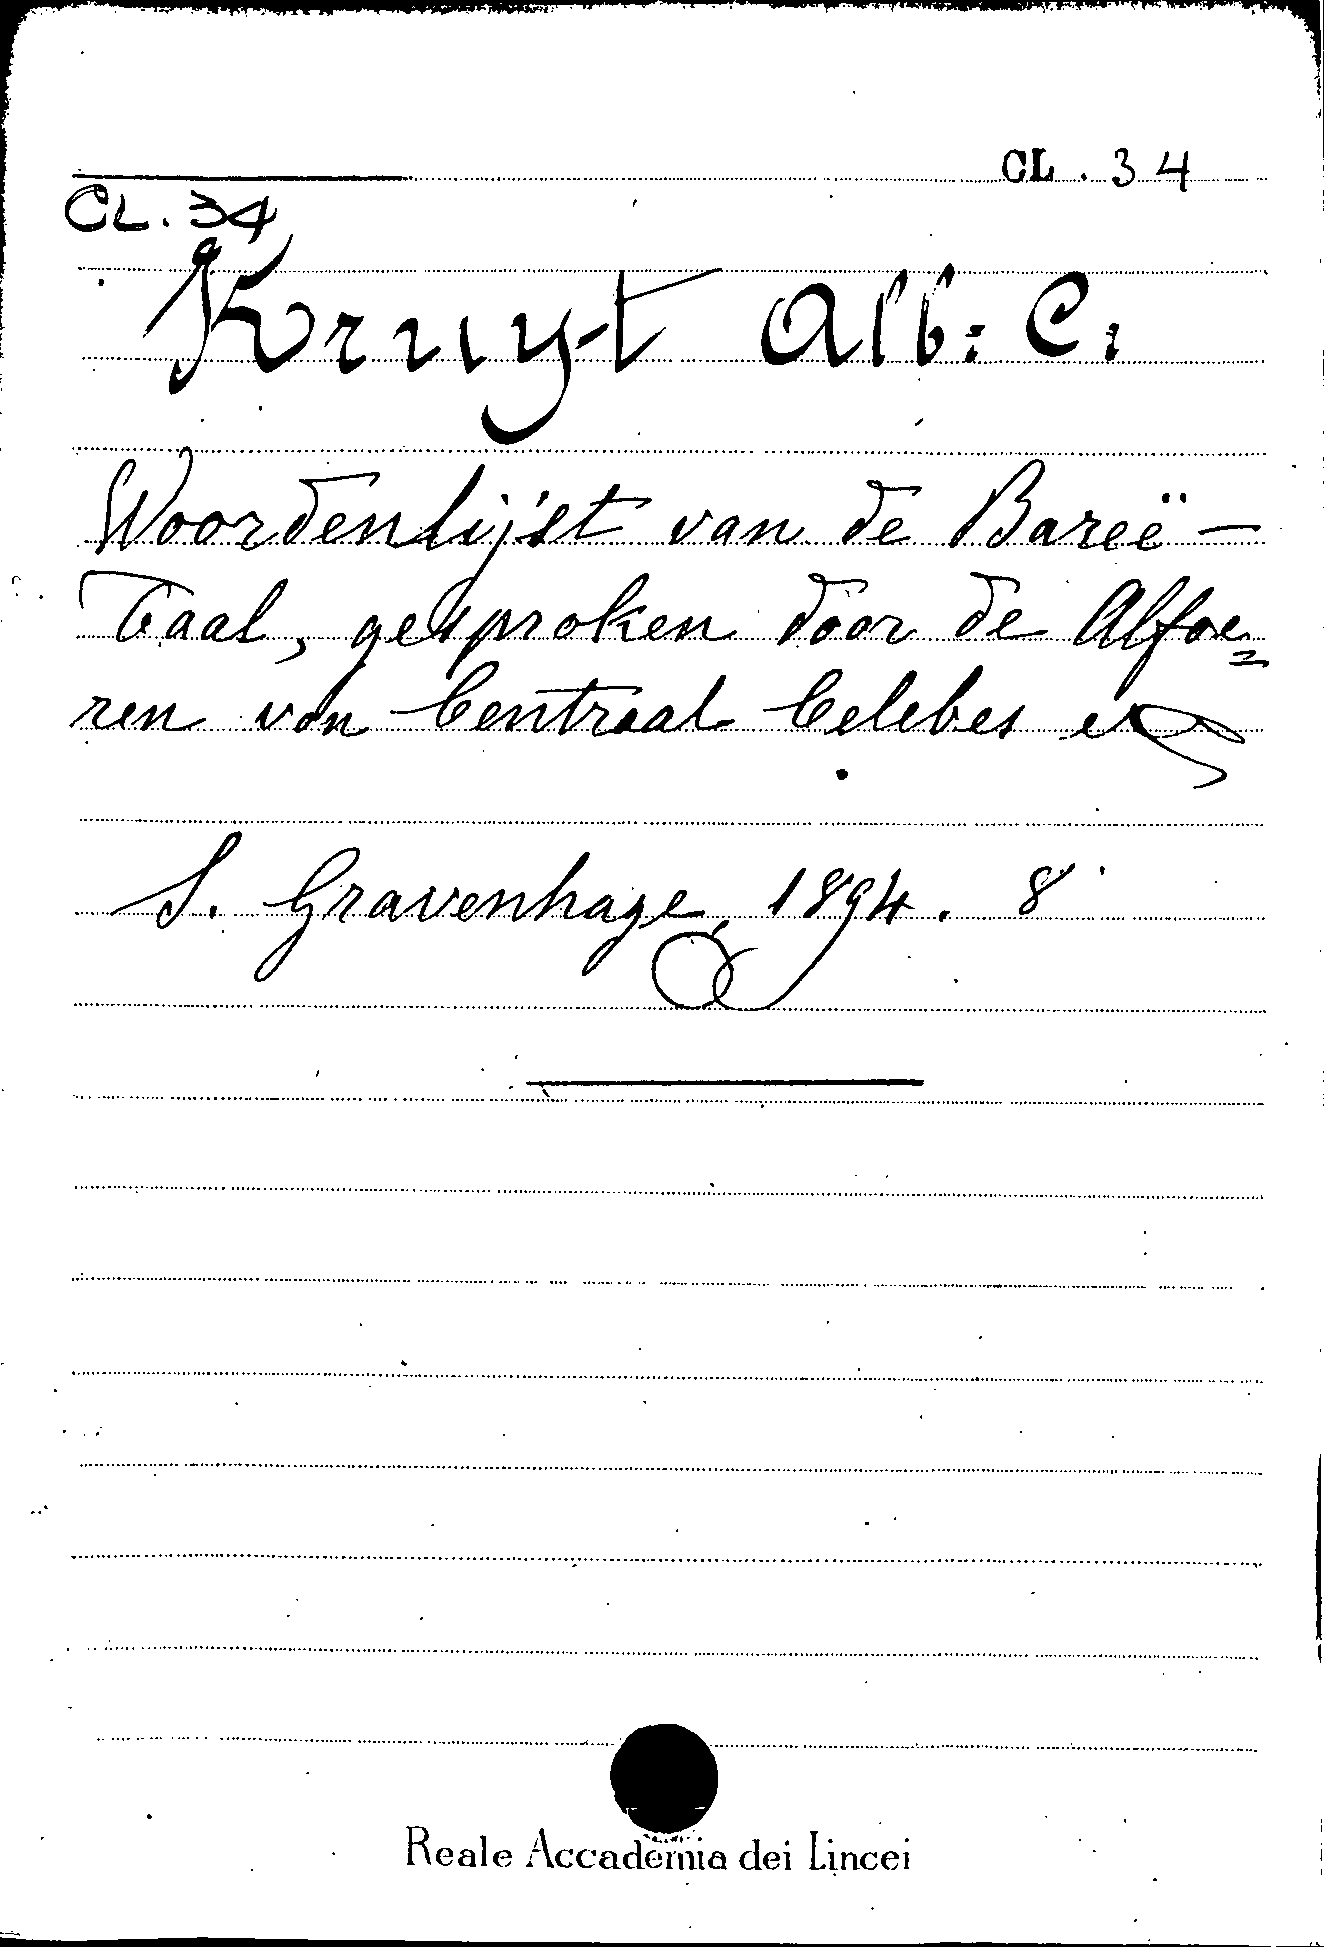 CL. 34
CL. 34
Kruyt Alb: C:
Woordenlijst van de Bareë-
Taal, gesproken door de Alfoe=
ren van Centraal Celebes
S. Gravenhage, 1894. 8°
Reale Accademia dei Lincei